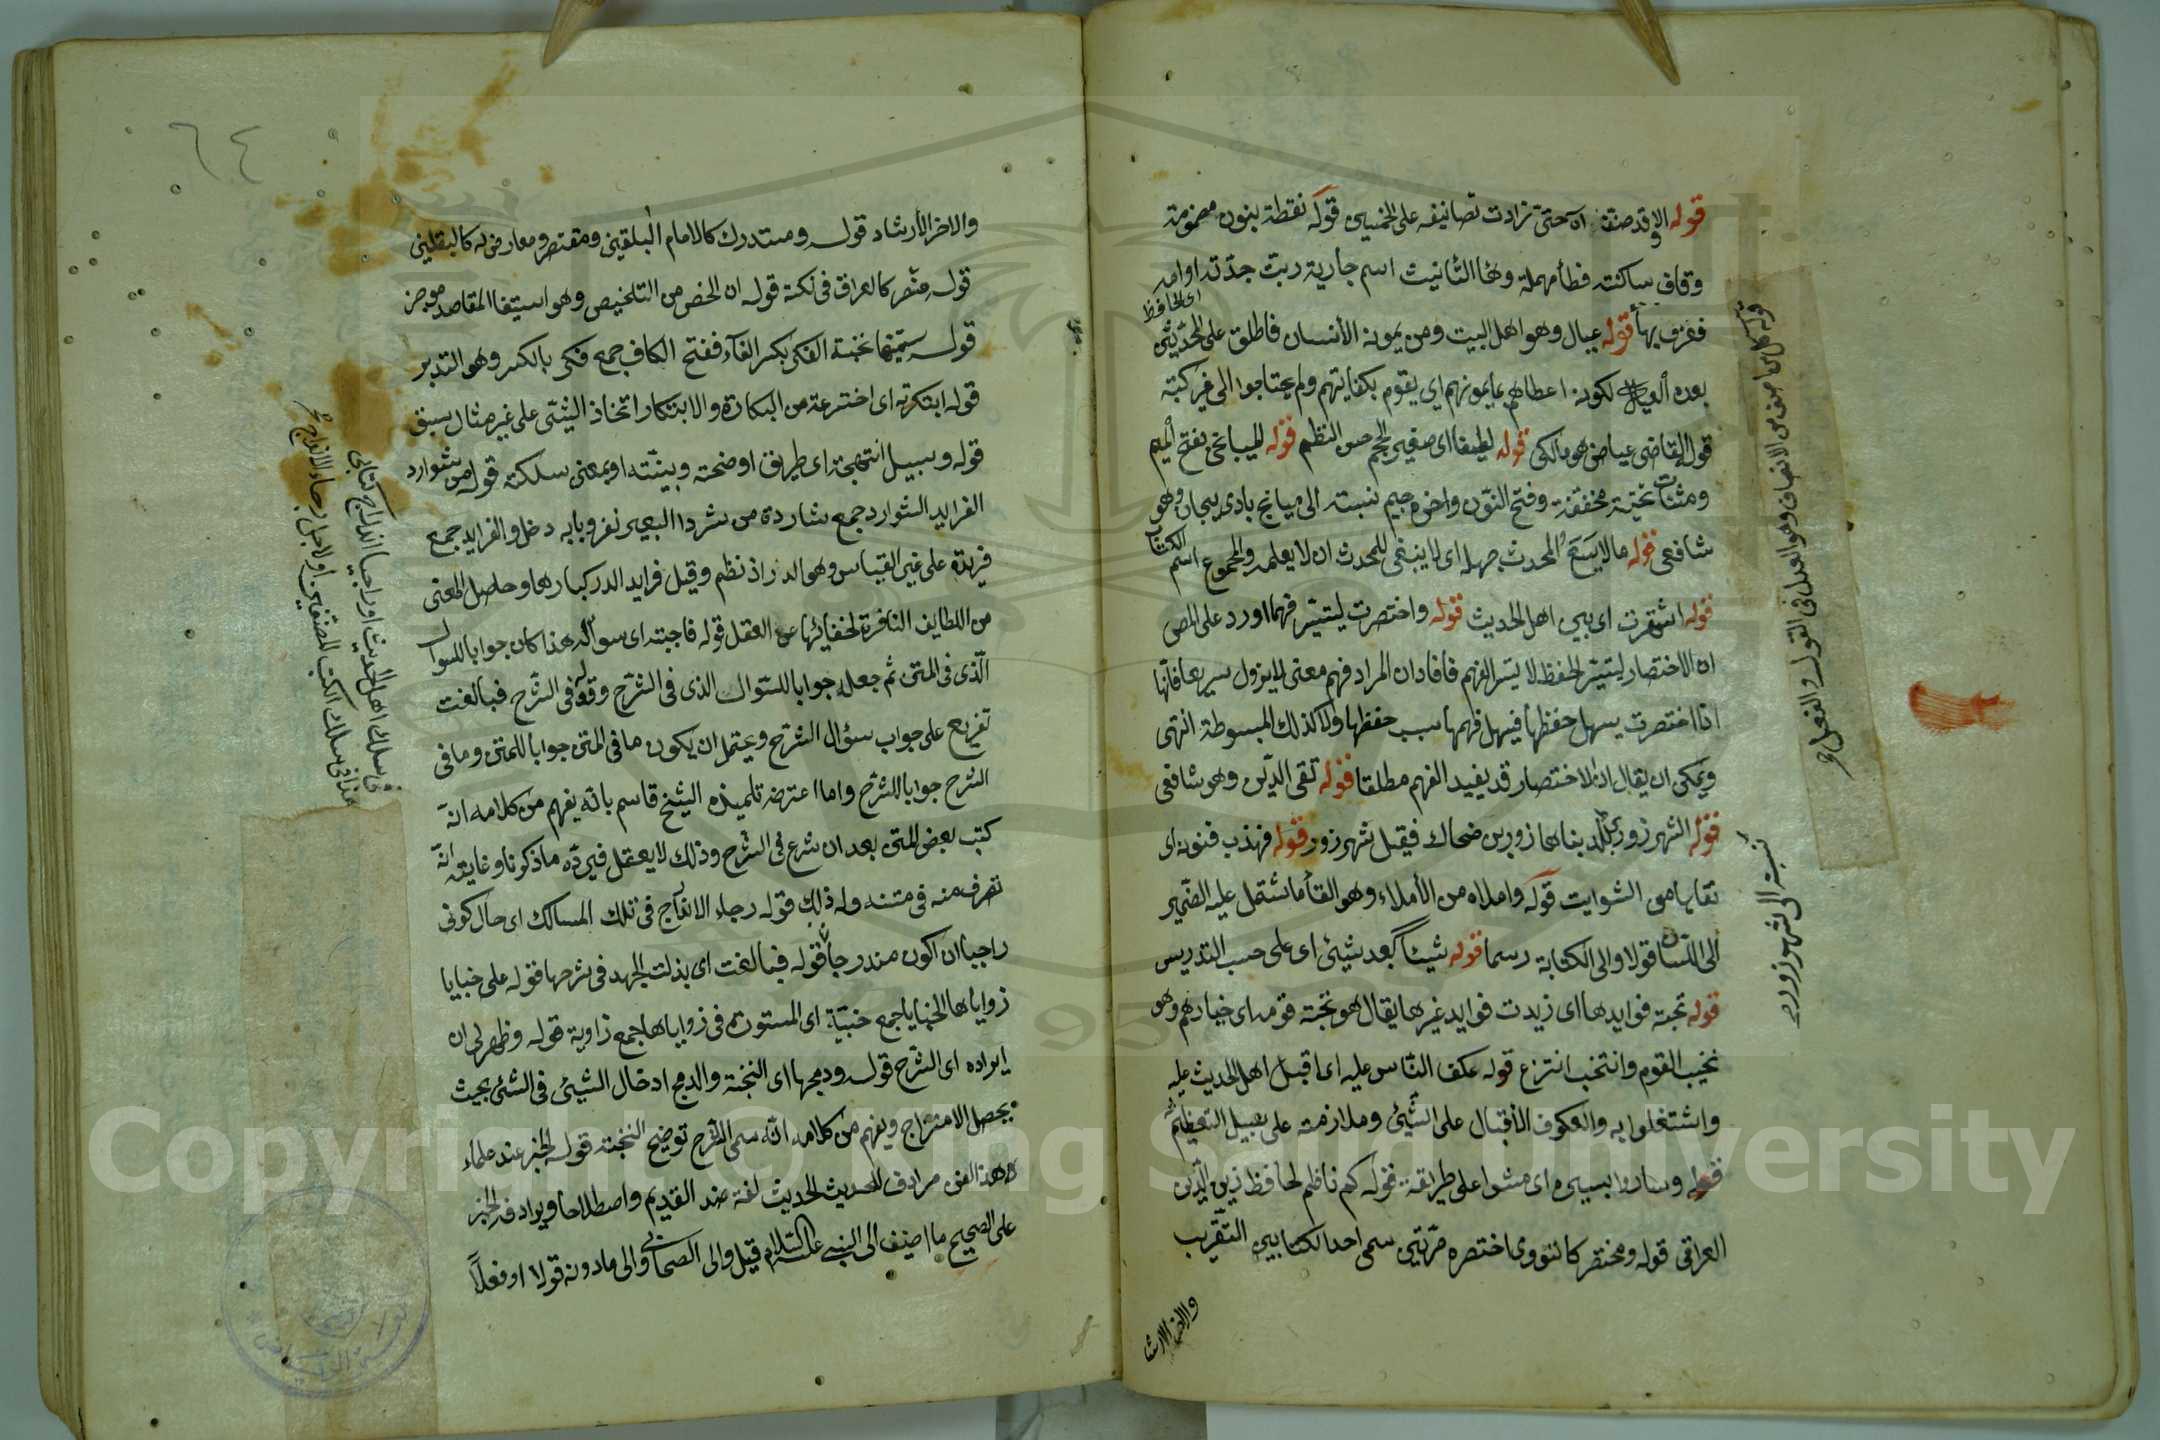 قوله الا وقد صنف ان حتى زادت تصانيفه على الخمسين قوله نقطة بنون مضمومة
وقاف ساكنة فطأ مهملة وهأ التانيث اسم جارية ربت جدته او امه
فعرف بها قوله عيال وهو اهل البيت ومن يمونه الانسان فاطلق على المحدثين
اى الحافظ
بعده العيال لكونه اعطاهم ما يمونهم اي يقوم بكفايتهم ولم يحتاجوا الى غير كتبه
قوله القاضى عياض هو مالكى قوله لطيفا اى صغير الحجم حسن النظم قوله الميانجى بفتح الميم
ومثناة تحتية مخففة وفتح النون واخره جيم نسبته الى ميانج باذربيجان وهو
شافعى قوله ما لا يسع المحدث جهله اى لا ينبغى للمحدث ان لا يعلمه والمجموع اسم
الكتاب
قوله اشتهرت اى بين اهل الحديث قوله واختصرت ليتيسر فهمها اورد على المص
ان الاختصار ليتيسر الحفظ لا يسر الفهم فافاد ان المراد فهم معنى لا يزول سريعا فانها
اذا اختصرت يسهل حفظها فيسهل فهمها بسبب حفظها ولا كذلك المبسوطة انتهى
ويمكن ان يقال ان الاختصار قد يفيد الفهم مطلقا قوله تقى الدين وهو شافعى
قوله الشهرزورى بلد بناها زور بن ضحاك فقيل شهرزور قوله فهذب فنونه اى
نقاها من الشوايب قوله واملاه من الأملاء وهو القأ ما شتمل عليه الضمير
الى اللسان قولا والى الكتابة رسما قوله شيئا بعد شيئ اى على حسب التدريس
قوله نخبة فوايدها اى زبدت فوايد غيرها يقال هو نخبة قومه اى خيارهم وهو
نخيب القوم وانتخب انتزع قوله عكف الناس عليه اى اقبل اهل الحديث عليه
واشتغلوا به والعكوف الأقبال على الشيئ وملازمته على سبيل التعظيم
قوله وساروا بسيره اى مشوا على طريقة قوله كم ناظم كحافظ زين الدين
العراقى قوله ومختصر كالنووى اختصره مرتين سمى احد الكتابين التقريب
والاخر الارشا
قوله كل من اصف من الانصاف وهو العدل فى القول والفعل
نسبته الى شهرزور
٦٤
والاخر الأرشاد قوله ومستدرك كالامام البلقينى ومقتصر ومعارض له كالبلقينى
قوله منتصر كالعراق فى نكته قوله ان الخص من التلخيص وهو استيفا المقاصد موجز
قوله سميتها نخبة الفكر بكسر الفآء ففتح الكاف جمع فكر بالكسر وهو التدبر
قوله ابتكرته اى اخترعته من البكارة والابتكار اتخاذ الشيئ على غير مثال سبق
قوله وسبيل انتهجته اى طريق اوضحته وبينته او بمعنى سلكته قوله من شوارد
الفرايد الشوارد جمع شاردة من شرد البعير نفر وبابه دخل والفرايد جمع
فريدة على غير القياس وهو الدر اذ نظم وقيل فرايد الدر كبارها وحاصل المعنى
من اللطايف النافرة لخفائها عن العقل قوله فاجبته اى سواله هذا كان جوابا للسوال
الذى فى المتن ثم جعله جوابا للسوال الذى فى الشرح وقوله فى الشرح فبالغت
تفريع على جواب سؤال الشرح ويحتمل ان يكون ما فى المتن جوابا للمتن وما فى
الشرح جوابا للشرح واما اعترض تلميذه الشيخ قاسم بانه يفهم من كلامه انه
كتب بعض المتن بعد ان شرع فى الشرح وذلك لا يعقل فيرده ما ذكرنا وغايته انه
تصرف منه فى متنه وله ذلك قوله رجاء الاندراج فى تلك المسالك اى حال كونى
راجيا ان اكون مندرجا قوله فبالغت اى بذلت الجهد فى شرحها قوله على خبايا
زواياها الخبايا جمع خبية اى المستورة فى زواياها جمع زاوية قوله وظهر لى ان
ايراده اى الشرح قوله ودمجها اى النخبة والدمج ادخال الشيئ فى الشئ بحيث
يحصل الامتزاج ويفهم من كلامه انه سمى الشرح توضيح النخبة قوله الخبر عند علماء
هذا الفن مرادف للحديث الحديث لغة ضد القديم واصطلاحا ويرادفه الخبر
على الصحيح ما اضيف الى النبى عليه السلام قيل والى الصحابى والى مادونه قولا او فعلا
فى سلك اهل الحديث او راجيا اندراج كتابى
هذا فى سلك الكتب المصنفين او لاجل رجاء الاندراج
Copyright © King Saud University
95